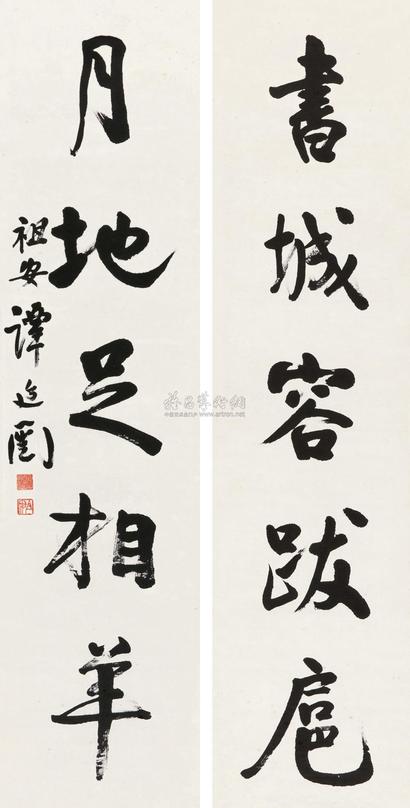 書城容跋扈
月地足相羊
祖安譚延闓
www.artron.net